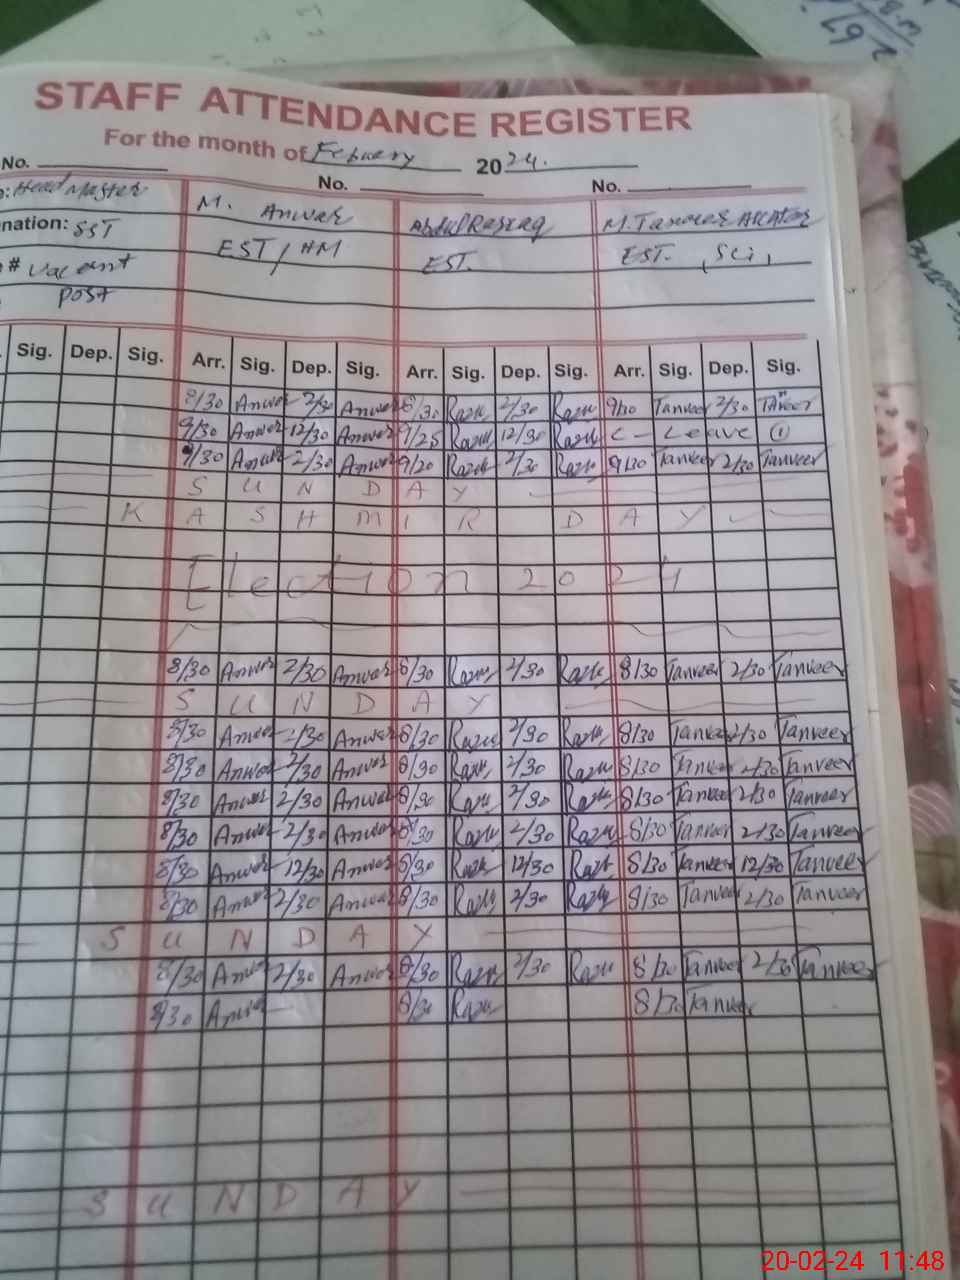 STAFF ATTENDANCE REGISTER
For the month of Febuary 2024.
No. No. No.
Head Master M. Anwar Abdul Razzaq M. Tanveer
nation: SST EST/HM EST. EST. Sci,
# Vacant
Post
Sig. Dep. Sig. Arr. Sig. Dep. Sig. Arr. Sig. Dep. Sig. Arr. Sig. Dep. Sig.
8/30 Anwar 2/30 Anwar 8/30 Razu 2/30 Razu 9/10 Tanveer 2/30 Tanveer
9/30 Anwar 12/30 Anwar 9/25 Razu 12/30 Razu C - Leave ①
9/30 Anwar 2/30 Anwar 9/20 Razu 2/30 Razu 9/30 Tanveer 2/30 Tanveer
S U N D A Y
K A S H M I R D A Y
Election 2024
8/30 Anwar 2/30 Anwar 8/30 Razu 2/30 Razu 8/30 Tanveer 2/30 Tanveer
S U N D A Y
8/30 Anwar 2/30 Anwar 8/30 Razu 2/30 Razu 8/30 Tanveer 2/30 Tanveer
8/30 Anwar 2/30 Anwar 8/30 Razu 2/30 Razu 8/30 Tanveer 2/30 Tanveer
8/30 Anwar 2/30 Anwar 8/30 Razu 2/30 Razu 8/30 Tanveer 2/30 Tanveer
8/30 Anwar 2/30 Anwar 8/30 Razu 2/30 Razu 8/30 Tanveer 2/30 Tanveer
8/30 Anwar 12/30 Anwar 8/30 Razu 12/30 Razu 8/30 Tanveer 12/30 Tanveer
8/30 Anwar 2/30 Anwar 8/30 Razu 2/30 Razu 8/30 Tanveer 2/30 Tanveer
S U N D A Y
8/30 Anwar 2/30 Anwar 8/30 Razu 2/30 Razu 8/30 Tanveer 2/30 Tanveer
8/30 Anwar 8/30 Razu 8/30 Tanveer
S U N D A Y
20-02-24 11:48